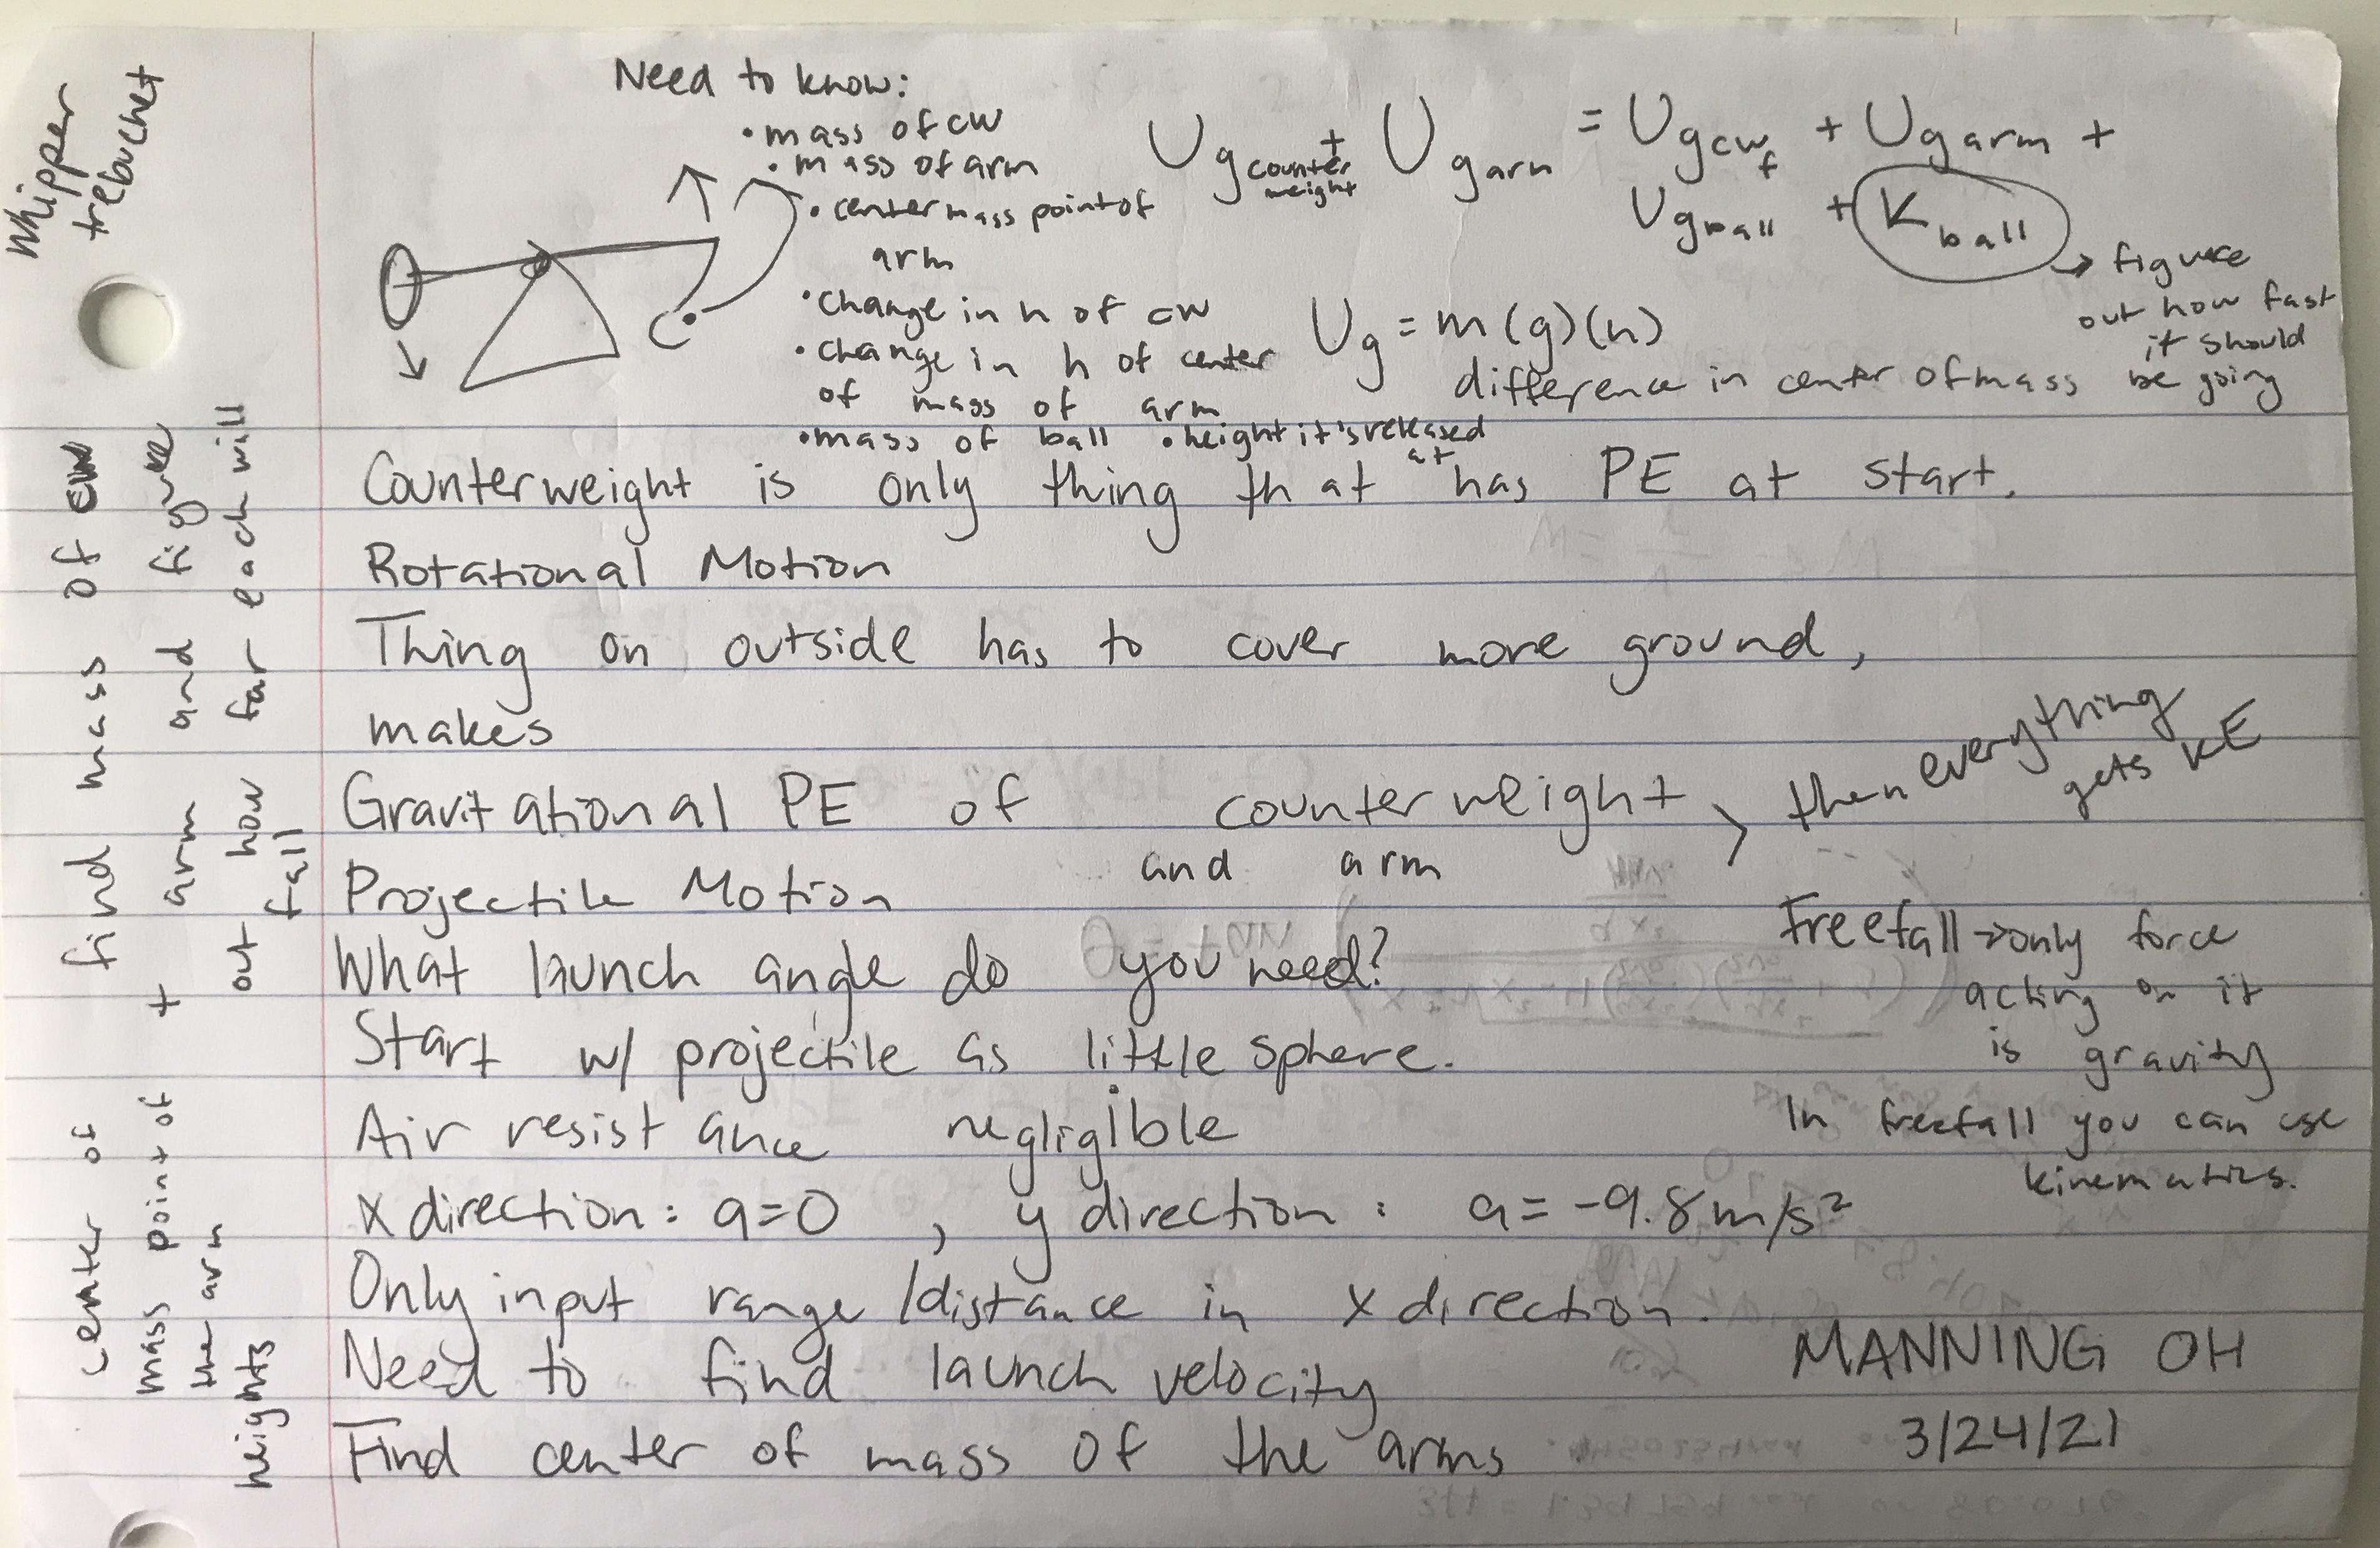 whipper
trebuchet
Need to know:
• mass of cw
• mass of arm
• center mass point of
arm
• change in h of cw
• change in h of center
of mass of arm
• mass of ball • height it's released
at
U g counter weight + U g arm = U g cw f + U g arm +
U g ball + K ball
→ figure
out how fast
it should
be going
Ug = m(g)(h)
difference in center of mass
Counterweight is only thing that has PE at start.
Rotational Motion
Thing on outside has to cover more ground,
makes
Gravitational PE of counterweight > then everything
gets KE
and arm
Projectile Motion
What launch angle do you need?
Start w/ projectile as little sphere.
Air resistance negligible
x direction: a=0 , y direction: a= -9.8m/s²
Only input range/distance in x direction.
Need to find launch velocity
Find center of mass of the arms
Freefall → only force
acting on it
is gravity
In freefall you can use
kinematics.
MANNING OH
3/24/21
find mass of cw
+ arm and figure
out how far each will
fall
center of
mass point of
the arm
heights